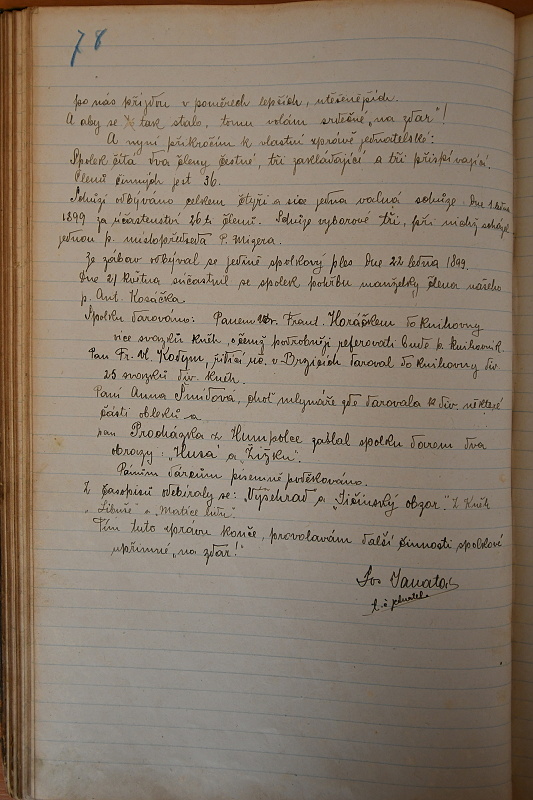 78
po nás přijdou v poměrech lepších, utěšenějších.
A aby se tak stalo, tomu volám srdečné „na zdar"!
A nyní přikročím k vlastní zprávě jednatelské:
Spolek čítá dva členy čestné, tři zakládající a tři přispívající.
Členů činných jest 36.
Schůzí odbýváno celkem čtyři a sice jedna valná schůze dne 1. ledna
1899 za účastenství 26ti členů. Schůze výborové tři, při nichž scházel
jednou p. místopředseda P. Migera.
Ze zábav odbýval se jedině spolkový ples dne 22 ledna 1899.
Dne 21 května súčastnil se spolek pohřbu manželky člena našeho
p. Ant. Kosáčka
Spolku darováno: Panem Frant. Horáčkem do knihovny
více svazků kněh, o čemž podrobněji referovati bude p. knihovník.
Pan Fr. Vl. Kodym, řídící uč. v Brzicích daroval do knihovny div.
25 svazků div. kněh.
Paní Anna Šmídová, choť mlynáře zde darovala k div. některé
části obleků a
pan Procházka z Humpolce zaslal spolku darem dva
obrazy: „Husa" a „Žižku".
Pánům dárcům písemně poděkováno.
Z časopisů odebíraly se: „Vyšehrad" a „Jičínský obzor". Z kněh
„Libuše" a „Matice lidu".
Tím tuto zprávu konče, provolávám další činnosti spolkové
upřímné „na zdar!"
Jos Janata
t. č. jednatel